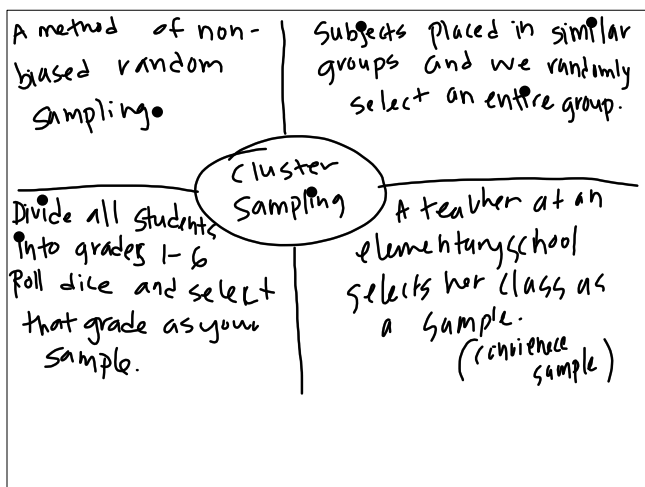 A method of non-
biased random
sampling.
Subjects placed in similar
groups and we randomly
select an entire group.
Cluster
Sampling
Divide all students
into grades 1-6
Roll dice and select
that grade as your
sample.
A teacher at an
elementary school
selects her class as
a sample.
(convience
sample)